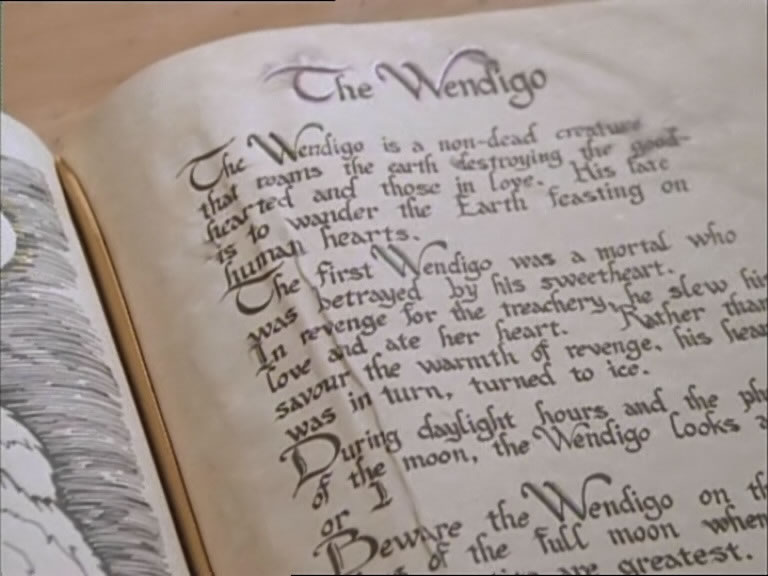 The Wendigo
The Wendigo is a non-dead creature
that roams the earth destroying the good-
hearted and those in love. His fate
is to wander the Earth feasting on
human hearts.
The first Wendigo was a mortal who
was betrayed by his sweetheart.
In revenge for the treachery, he slew his
love and ate her heart. Rather than
savour the warmth of revenge, his
was in turn, turned to ice.
During daylight hours and the
of the moon, the Wendigo looks
or I
Beware the Wendigo on
of the full moon when
are greatest.